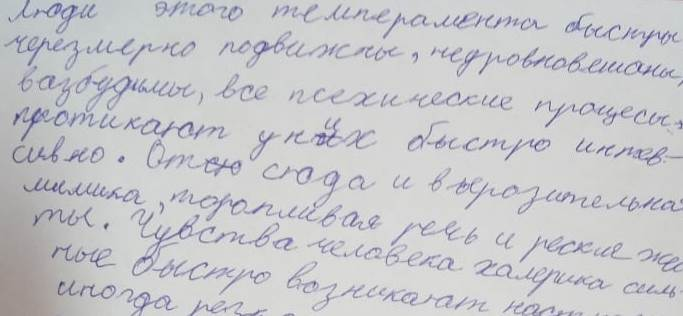 Люди этого темперамента быстры
черезмерно подвижны, недровновешаны,
вазбудимы, все псехические процесы,
протикают у них быстро интен-
сивно. Отсю сюда и вырозительная
мимика, торапливая речь и реские же
ты. Чувства человека халерика силь-
ные быстро возникают наст
иногда рез